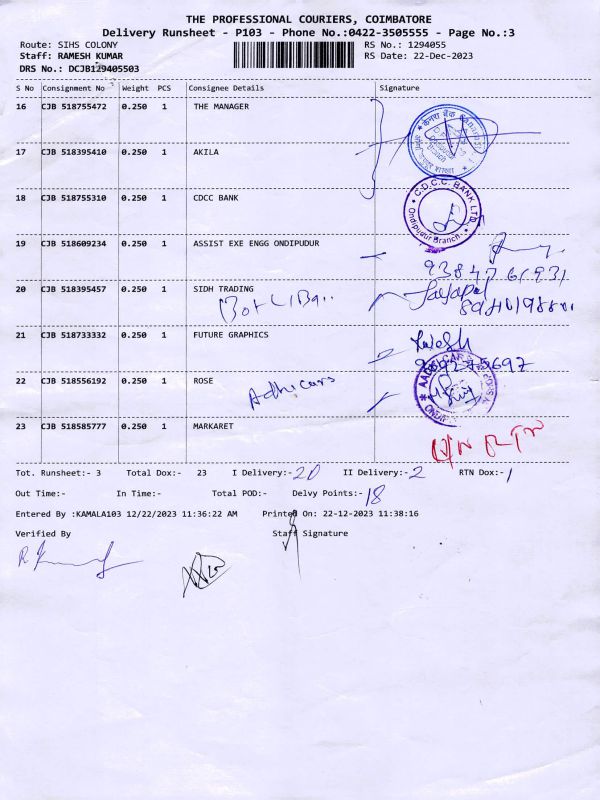 THE PROFESSIONAL COURIERS, COIMBATORE
Delivery Runsheet - P103 - Phone No.:0422-3505555 - Page No.:3
Route: SIHS COLONY RS No.: 1294055
Staff: RAMESH KUMAR RS Date: 22-Dec-2023
DRS No.: DCJB129405503
S No Consignment No Weight PCS Consignee Details Signature
16 CJB 518755472 0.250 1 THE MANAGER
17 CJB 518395410 0.250 1 AKILA
18 CJB 518755310 0.250 1 CDCC BANK
C.D.C.C. BANK LTD.
Ondipudur Branch
19 CJB 518609234 0.250 1 ASSIST EXE ENGG ONDIPUDUR
20 CJB 518395457 0.250 1 SIDH TRADING
Jayapal
21 CJB 518733332 0.250 1 FUTURE GRAPHICS
22 CJB 518556192 0.250 1 ROSE
Adhi cars
23 CJB 518585777 0.250 1 MARKARET
Tot. Runsheet:- 3 Total Dox:- 23 I Delivery:- 20 II Delivery:- 2 RTN Dox:- 1
Out Time:- In Time:- Total POD:- Delvy Points:- 18
Entered By :KAMALA103 12/22/2023 11:36:22 AM Printed On: 22-12-2023 11:38:16
Verified By Staff Signature